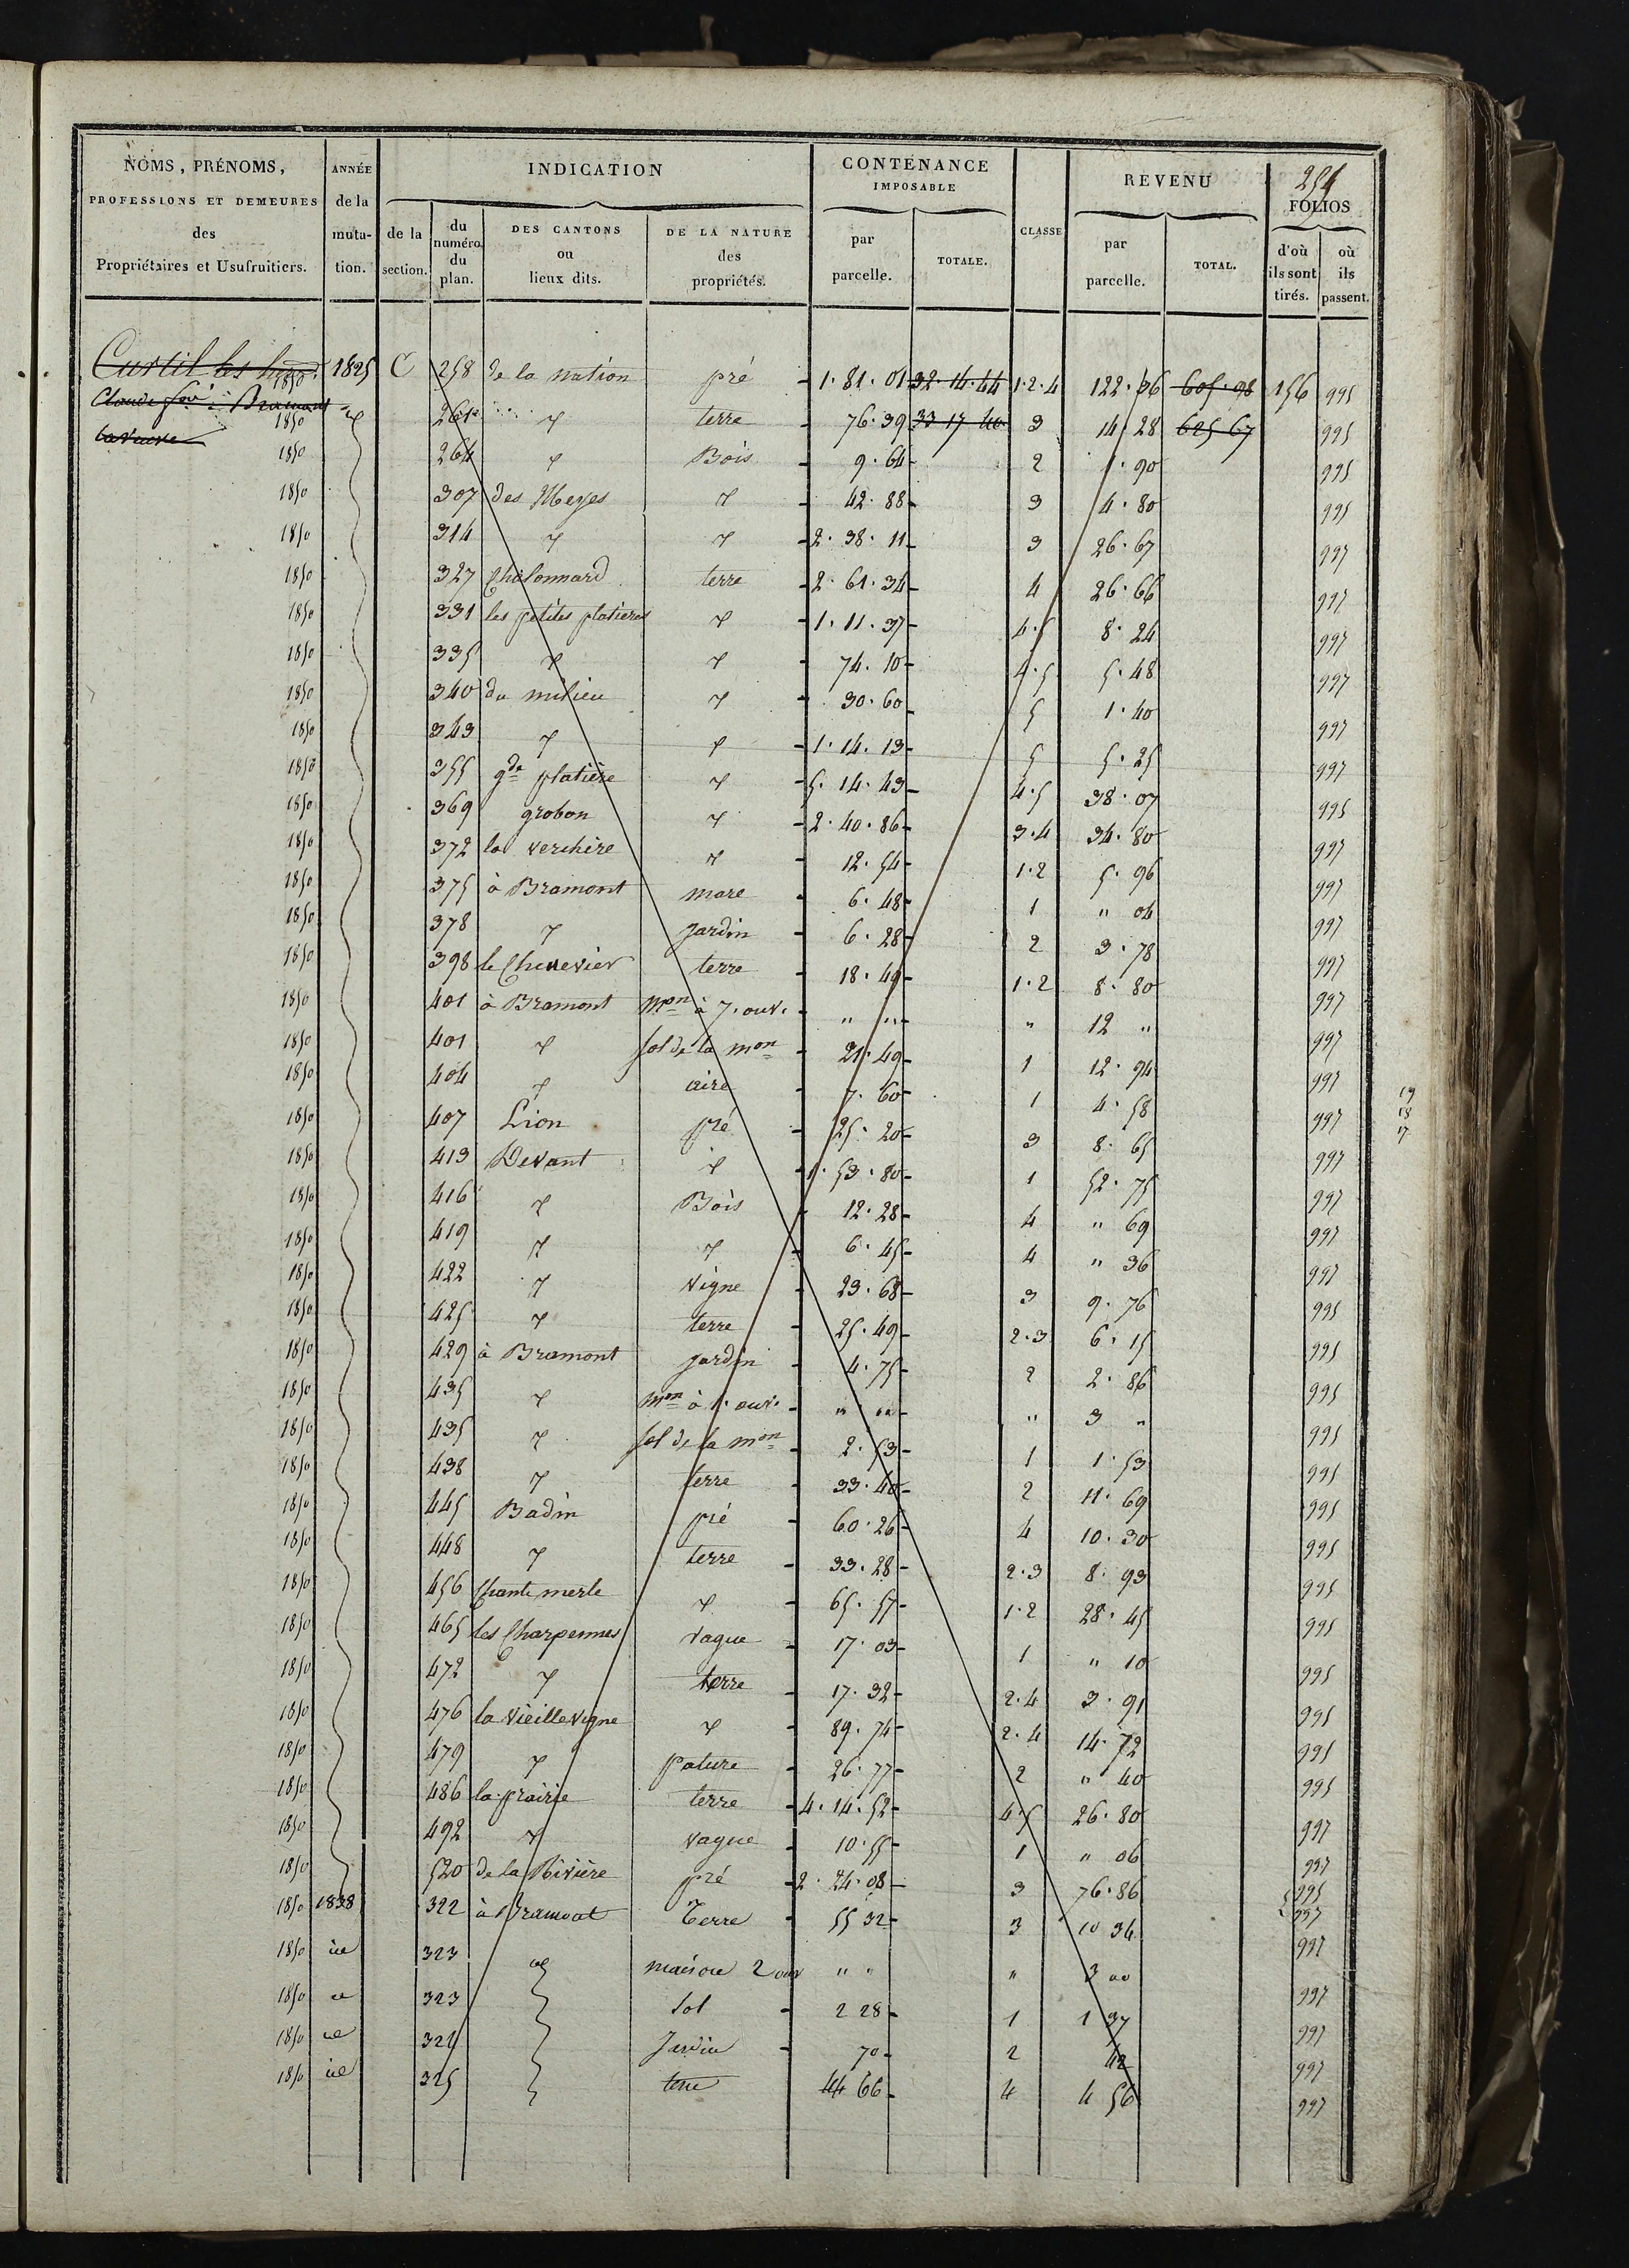 254
NOMS, PRÉNOMS, PROFESSIONS ET DEMEURES des Propriétaires et Usufruitiers.
ANNÉE de la muta- tion.
INDICATION
de la section.
du numéro du plan.
DES CANTONS ou lieux dits.
DE LA NATURE des propriétés.
CONTENANCE IMPOSABLE
par parcelle.
TOTALE.
CLASSE
REVENU
par parcelle.
TOTAL.
FOLIOS
d'où ils sont tirés.
où ils passent.
Curtil les 1850 1825 C 258 de la nation pré 1.81.01 32.14.44 1.2.4 122.36 605.98 156 995
Claude à Bramont 1850 261 " terre 76.39 33 17 40 3 14.28 625 67 995
la veuve 1850 264 " Bois 9.64 2 1.90 995
1850 307 des Meyes " 42.88 3 4.80 995
1850 314 " " 2.38.11 3 26.67 997
1850 327 Chalonnard terre 2.61.34 4 26.66 997
1850 331 les petites platières " 1.11.37 4.5 8.24 997
1850 335 " " 74.10 4.5 5.48 997
1850 340 du milieu " 30.60 5 1.40 997
1850 343 " " 1.14.13 5 5.25 997
1850 355 gde platière " 5.14.43 4.5 38.07 995
1850 369 grobon " 2.40.86 3.4 34.80 997
1850 372 la verchère " 12.54 1.2 5.96 997
1850 375 à Bramont mare 6.48 1 " 04 997
1850 378 " jardin 6.28 2 3.78 997
1850 398 le Chenevier terre 18.49 1.2 8.80 997
1850 401 à Bramont mon à 7. ouv. " " " 12 " 997
1850 401 " sol de la mon 21.49 1 12.94 997
1850 404 " aire 7.60 1 4.58 997
19
18
17
1850 407 Lion pré 25.20 3 8.65 997
1850 413 Devant " 1.53.80 1 52.75 997
1850 416 " Bois 12.28 4 " 69 997
1850 419 " " 6.45 4 " 36 997
1850 422 " vigne 23.68 3 9.76 995
1850 425 " terre 25.49 2.3 6.15 995
1850 429 à Bramont jardin 4.75 2 2.86 995
1850 435 " mon à 1. ouv. " " " 3 " 995
1850 435 " sol de la mon 2.53 1 1.53 995
1850 438 " terre 33.40 2 11.69 995
1850 445 Badin pré 60.26 4 10.30 995
1850 448 " terre 33.28 2.3 8.93 995
1850 456 Chante merle " 65.57 1.2 28.45 995
1850 465 les Charpennes vague 17.03 1 " 10 995
1850 472 " terre 17.32 2.4 3.91 995
1850 476 la vieille vigne " 89.74 2.4 14.72 995
1850 479 " pature 26.77 2 " 40 995
1850 486 la prairie terre 4.14.52 4.5 26.80 997
1850 492 " vague 10.55 1 " 06 997
1850 520 de la Rivière pré 2.24.08 3 76.86 995 997
1850 1838 322 à Bramont Terre 55 32 3 10 34 997
1850 id 323 id maison 2 ouv " " " 3 00 997
1850 id 323 sol 2 28 1 1 37 997
1850 id 324 Jardin 70 2 42 997
1850 id 325 terre 44 66 4 4 56 997